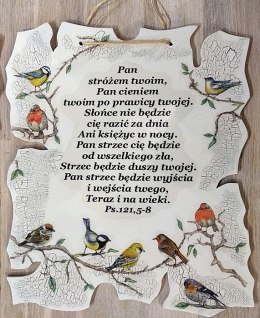 Pan
stróżem twoim,
Pan cieniem
twoim po prawicy twojej.
Słońce nie będzie
cię razić za dnia
Ani księżyc w nocy.
Pan strzec cię będzie
od wszelkiego zła,
Strzec będzie duszy twojej.
Pan strzec będzie wyjścia
i wejścia twego,
Teraz i na wieki.
Ps.121,5-8